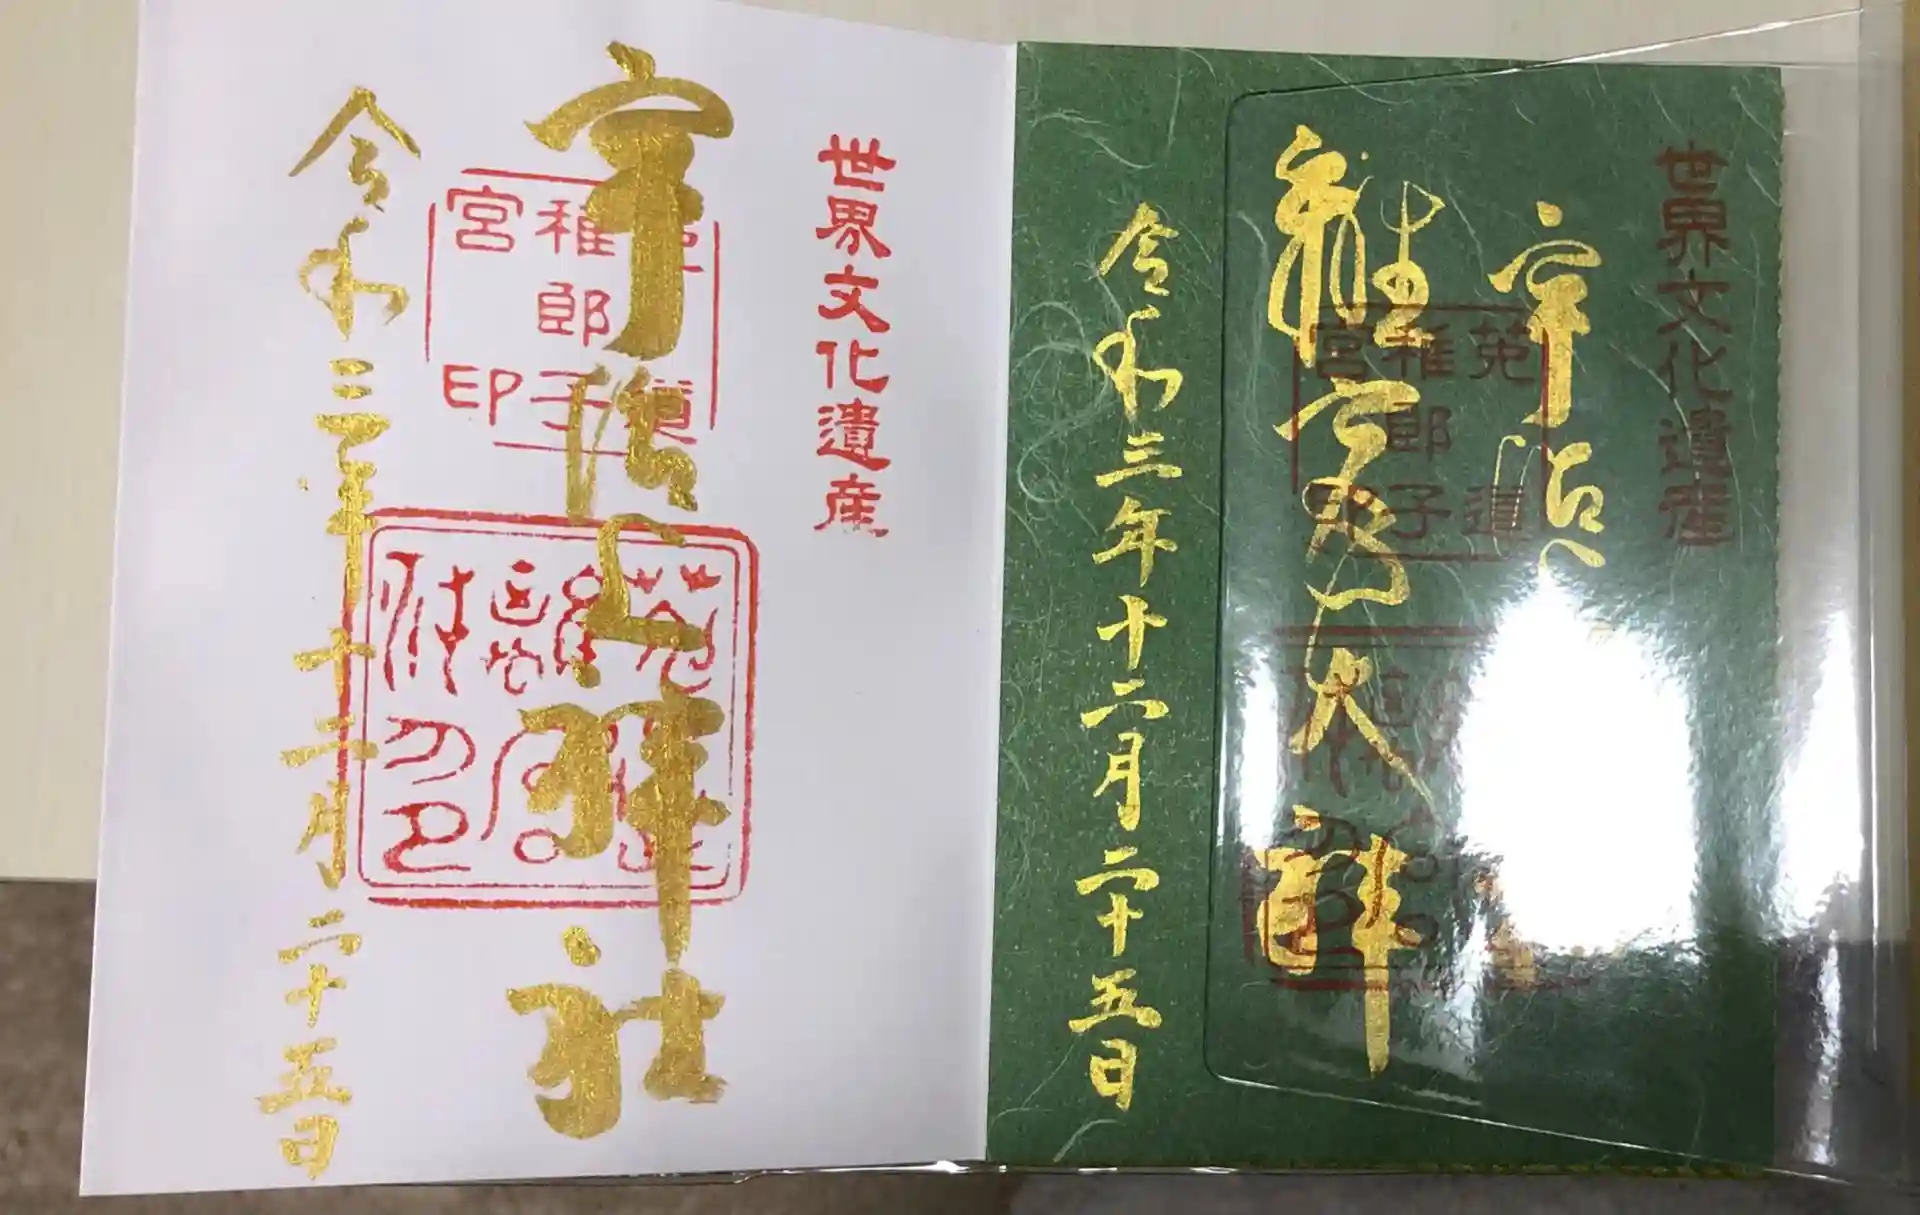 世界文化遺産
宇治
大神
菟道
稚郎子
宮
令和三年十二月二十五日
世界文化遺産
宇治上神社
菟道
稚郎子
宮印
令和三年十二月二十五日